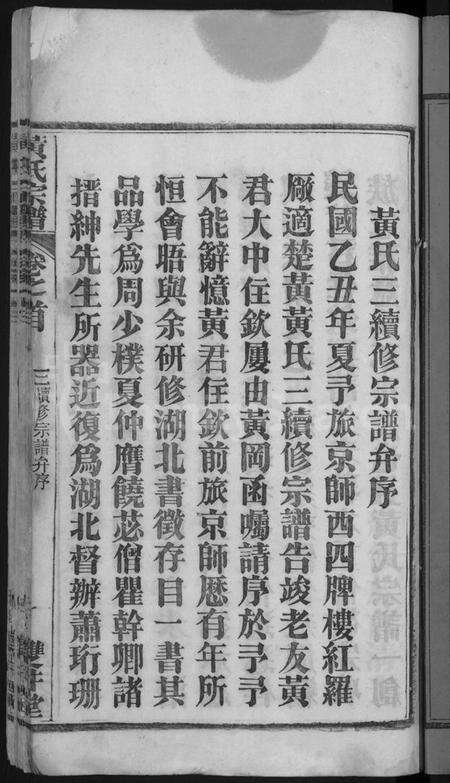 黃氏三續修宗譜弁序
民國乙丑年夏予旅京師西四牌樓紅羅
厰適楚黃黃氏三續修宗譜告竣老友黃
君大中任欽屢由黃岡函囑請序於予予
不能辭憶黃君任欽前旅京師歷有年所
恒會晤與余研修湖北書徵存目一書其
品學爲周少樸夏仲膺饒苾僧瞿幹卿諸
搢紳先生所器近復爲湖北督辦蕭珩珊
黃氏宗譜
卷之首
三續修宗譜弁序
一